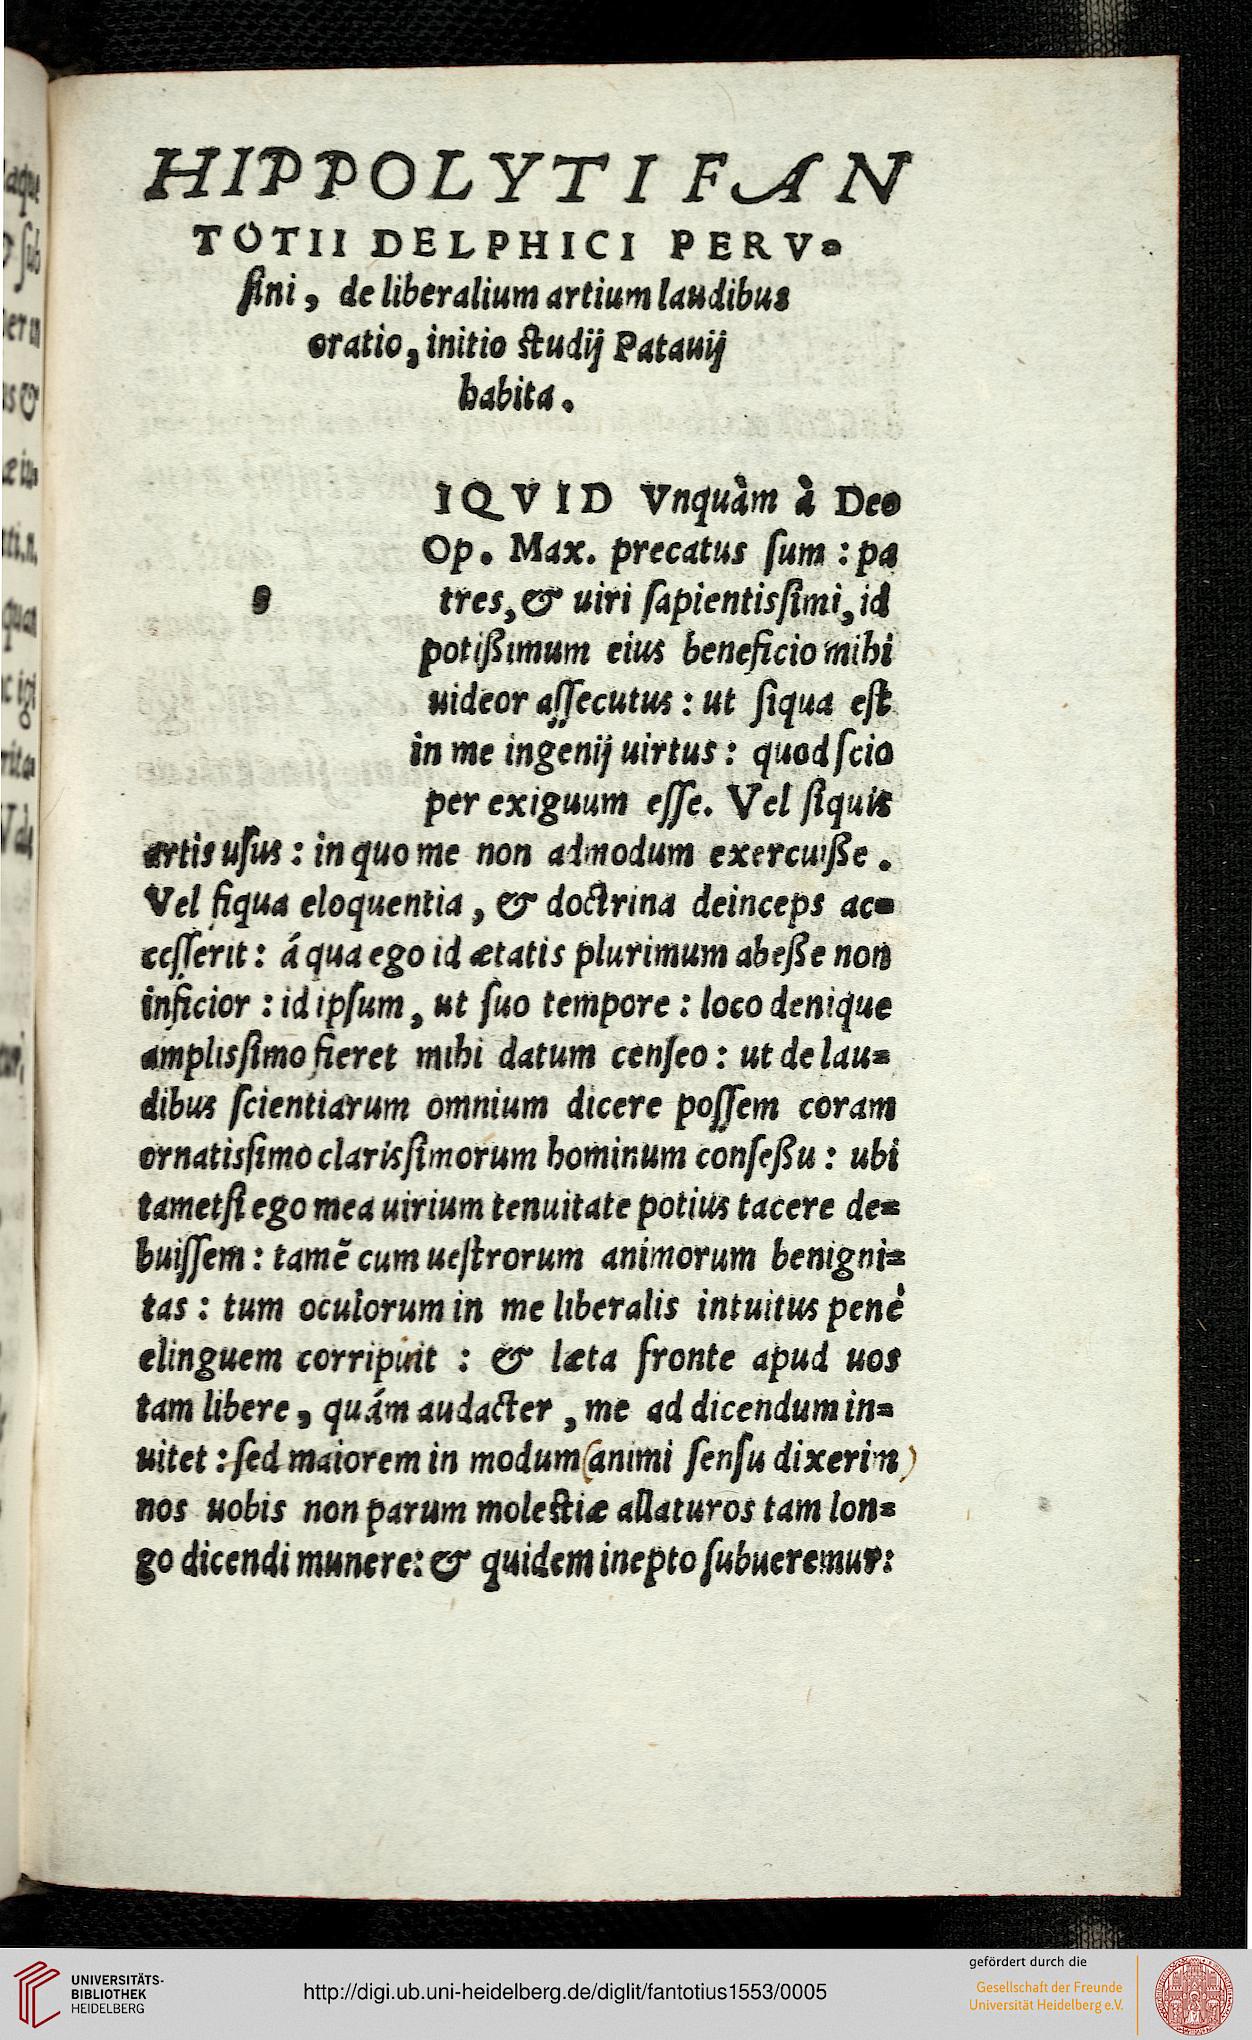 HIPPOLYTI FAN
TOTII DELPHICI PERV=
ſini, de liberalium artium laudibus
oratio, initio ſtudij Patauij
habita.
s
IQVID Vnquàm à Deo
Op. Max. precatus ſum : pa
tres, & uiri ſapientisſimi, id
potißimum eius beneficio mihi
uideor aſſecutus : ut ſiqua eſt
in me ingenij uirtus : quod ſcio
per exiguum eſſe. Vel ſiquis
artis uſus : in quo me non admodum exercuiße.
Vel ſiqua eloquentia, & doctrina deinceps ac=
ceſſerit : á qua ego id ætatis plurimum abeße non
inficior : id ipſum, ut ſuo tempore : loco denique
amplisſimo fieret mihi datum cenſeo : ut de lau=
dibus ſcientiarum omnium dicere poſſem coram
ornatisſimo clarisſimorum hominum conſeßu : ubi
tametſi ego mea uirium tenuitate potius tacere de=
buiſſem : tamē cum ueſtrorum animorum benigni=
tas : tum oculorum in me liberalis intuitus penè
elinguem corripuit : & læta fronte apud uos
tam libere, quám audacter, me ad dicendum in=
uitet : ſed maiorem in modum (animi ſenſu dixerim)
nos uobis non parum moleſtiæ allaturos tam lon=
go dicendi munere: & quidem inepto ſubueremur:
UNIVERSITÄTS-
BIBLIOTHEK
HEIDELBERG
http://digi.ub.uni-heidelberg.de/diglit/fantotius1553/0005
gefördert durch die
Gesellschaft der Freunde
Universität Heidelberg e.V.